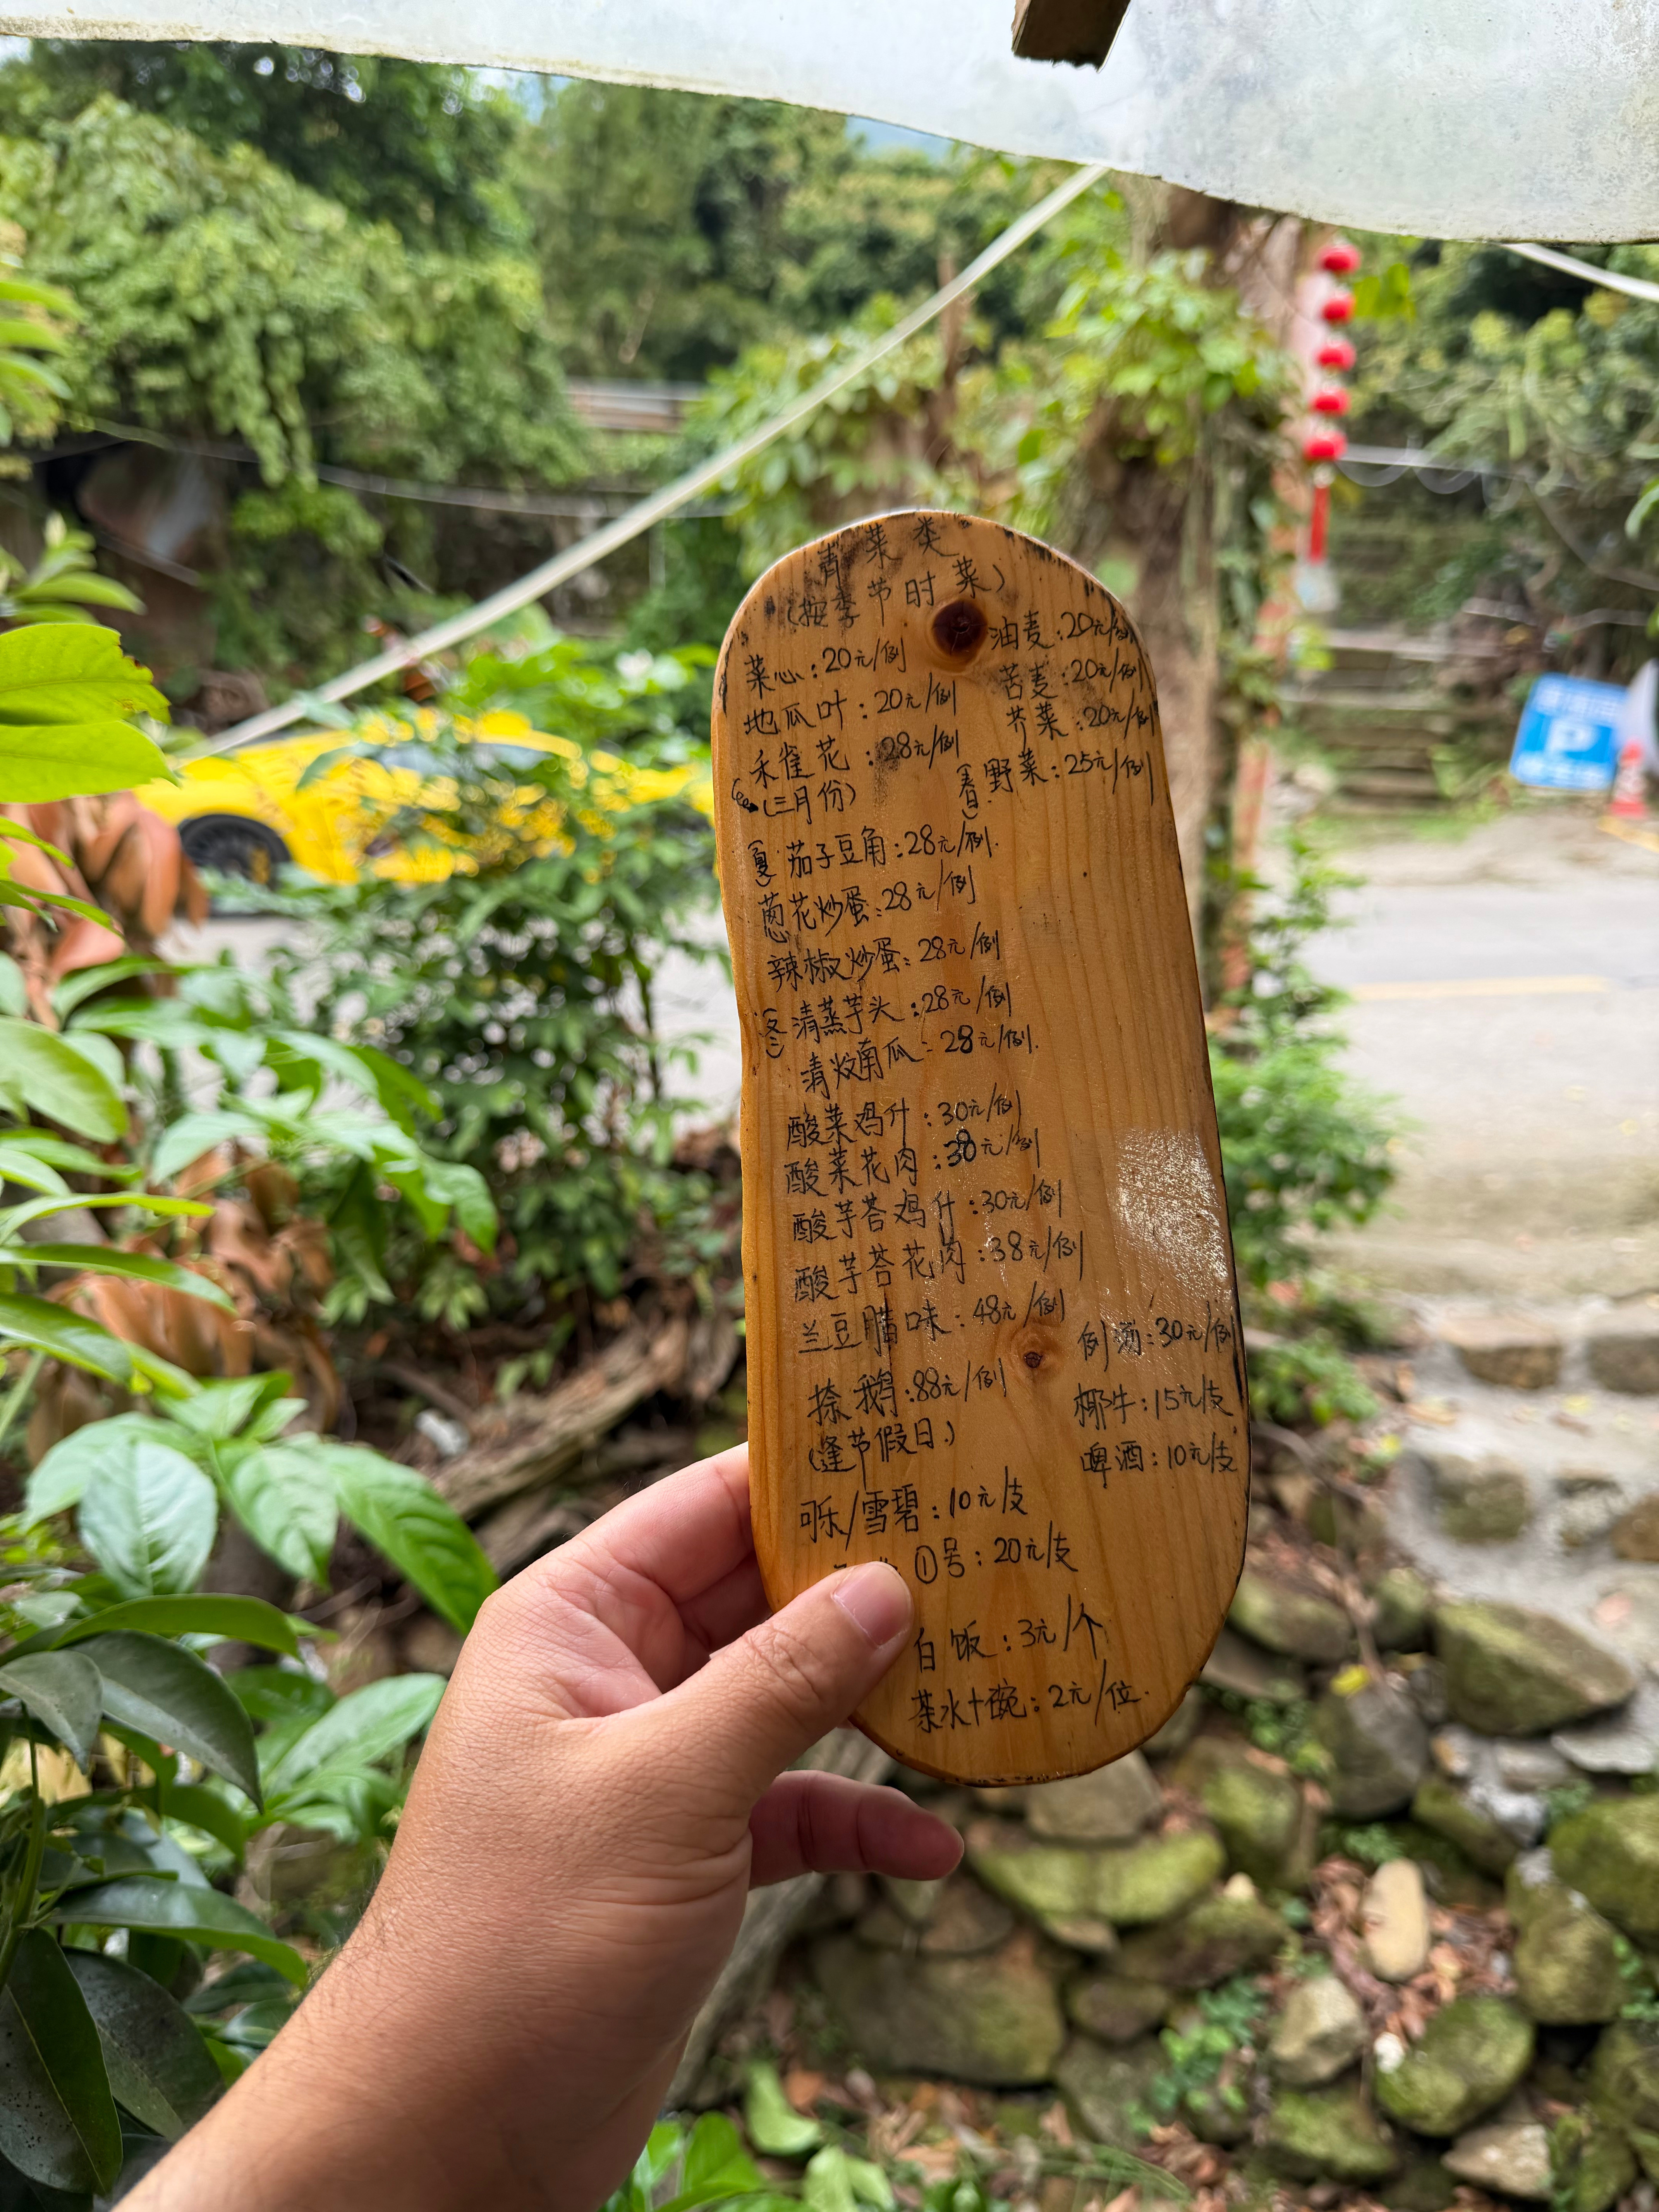 青菜类
(按季节时菜)
菜心:20元/例
油麦:20元/例
地瓜叶:20元/例
苦麦:20元/例
禾雀花:28元/例
芥菜:20元/例
(三月份)
(春)野菜:25元/例
(夏)茄子豆角:28元/例.
葱花炒蛋:28元/例
辣椒炒蛋:28元/例
(冬)清蒸芋头:28元/例
清炆南瓜:28元/例.
酸菜鸡什:30元/例
酸菜花肉:38元/例
酸芋荅鸡什:30元/例
酸芋荅花肉:38元/例
兰豆腊味:48元/例
例汤:30元/例
捺鹅:88元/例
(逢节假日)
椰牛:15元/支
啤酒:10元/支
可乐/雪碧:10元/支
①号:20元/支
白饭:3元/个
茶水十碗:2元/位.
P